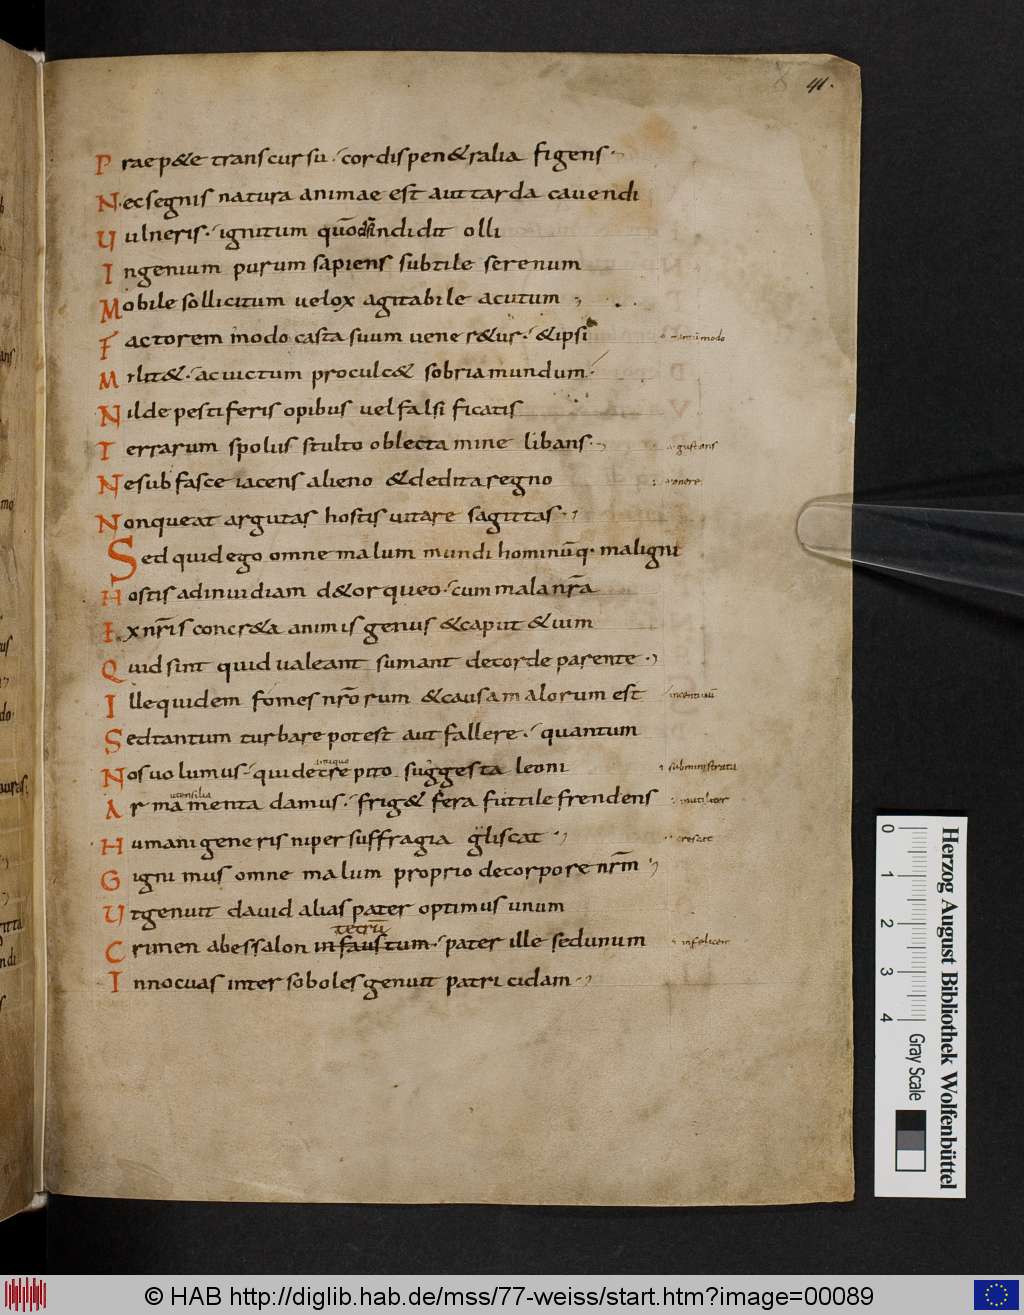 41.
P raep&e transcursu. cordis pen&ralia figens.
N ec segnis natura animae est aut tarda cavendi
U ulneris. ignitum quō indidit olli
I ngenium purum sapiens subtile serenum
M obile sollicitum uelox agitabile acutum
F actorem modo casta suum ueneR&ur. &ipsi
M ilit&. acuictum proculc& sobria mundum.
N il de pestiferis opibus uel falsificatis
T errarum spoliis stulto oblectamine libans. gustans
N e sub fasce iacens alieno &dedita regno onere
N on queat argutas hostis uitare sagittas.
S ed quid ego omne malum mundi hominūq. maligni
H ostis ad inuidiam d&orqueo. cum mala nr̄a
E x nr̄is concr&a animis genus &caput &uim
Q uid sint quid ualeant sumant de corde parente.
I lle quidem fomes nr̄orum &causa malorum est incentiuū
S ed tantum turbare potest aut fallere. quantum
antiquo
N os uolumus. qui decrepito suggesta leoni subministrata
utensilia
A rmamenta damus. frig& fera futtile frendens inutiliter
H umani generis ni per suffragia gliscat crescit
G ignimus omne malum proprio de corpore nr̄m
U t genuit dauid alias pater optimus unum
tetrū
C rimen abessalon infaustum. pater ille sed unum infelicem
I nnocuas inter soboles genuit patricidam
0 1 2 3 4
Gray Scale
Herzog August Bibliothek Wolfenbüttel
© HAB http://diglib.hab.de/mss/77-weiss/start.htm?image=00089